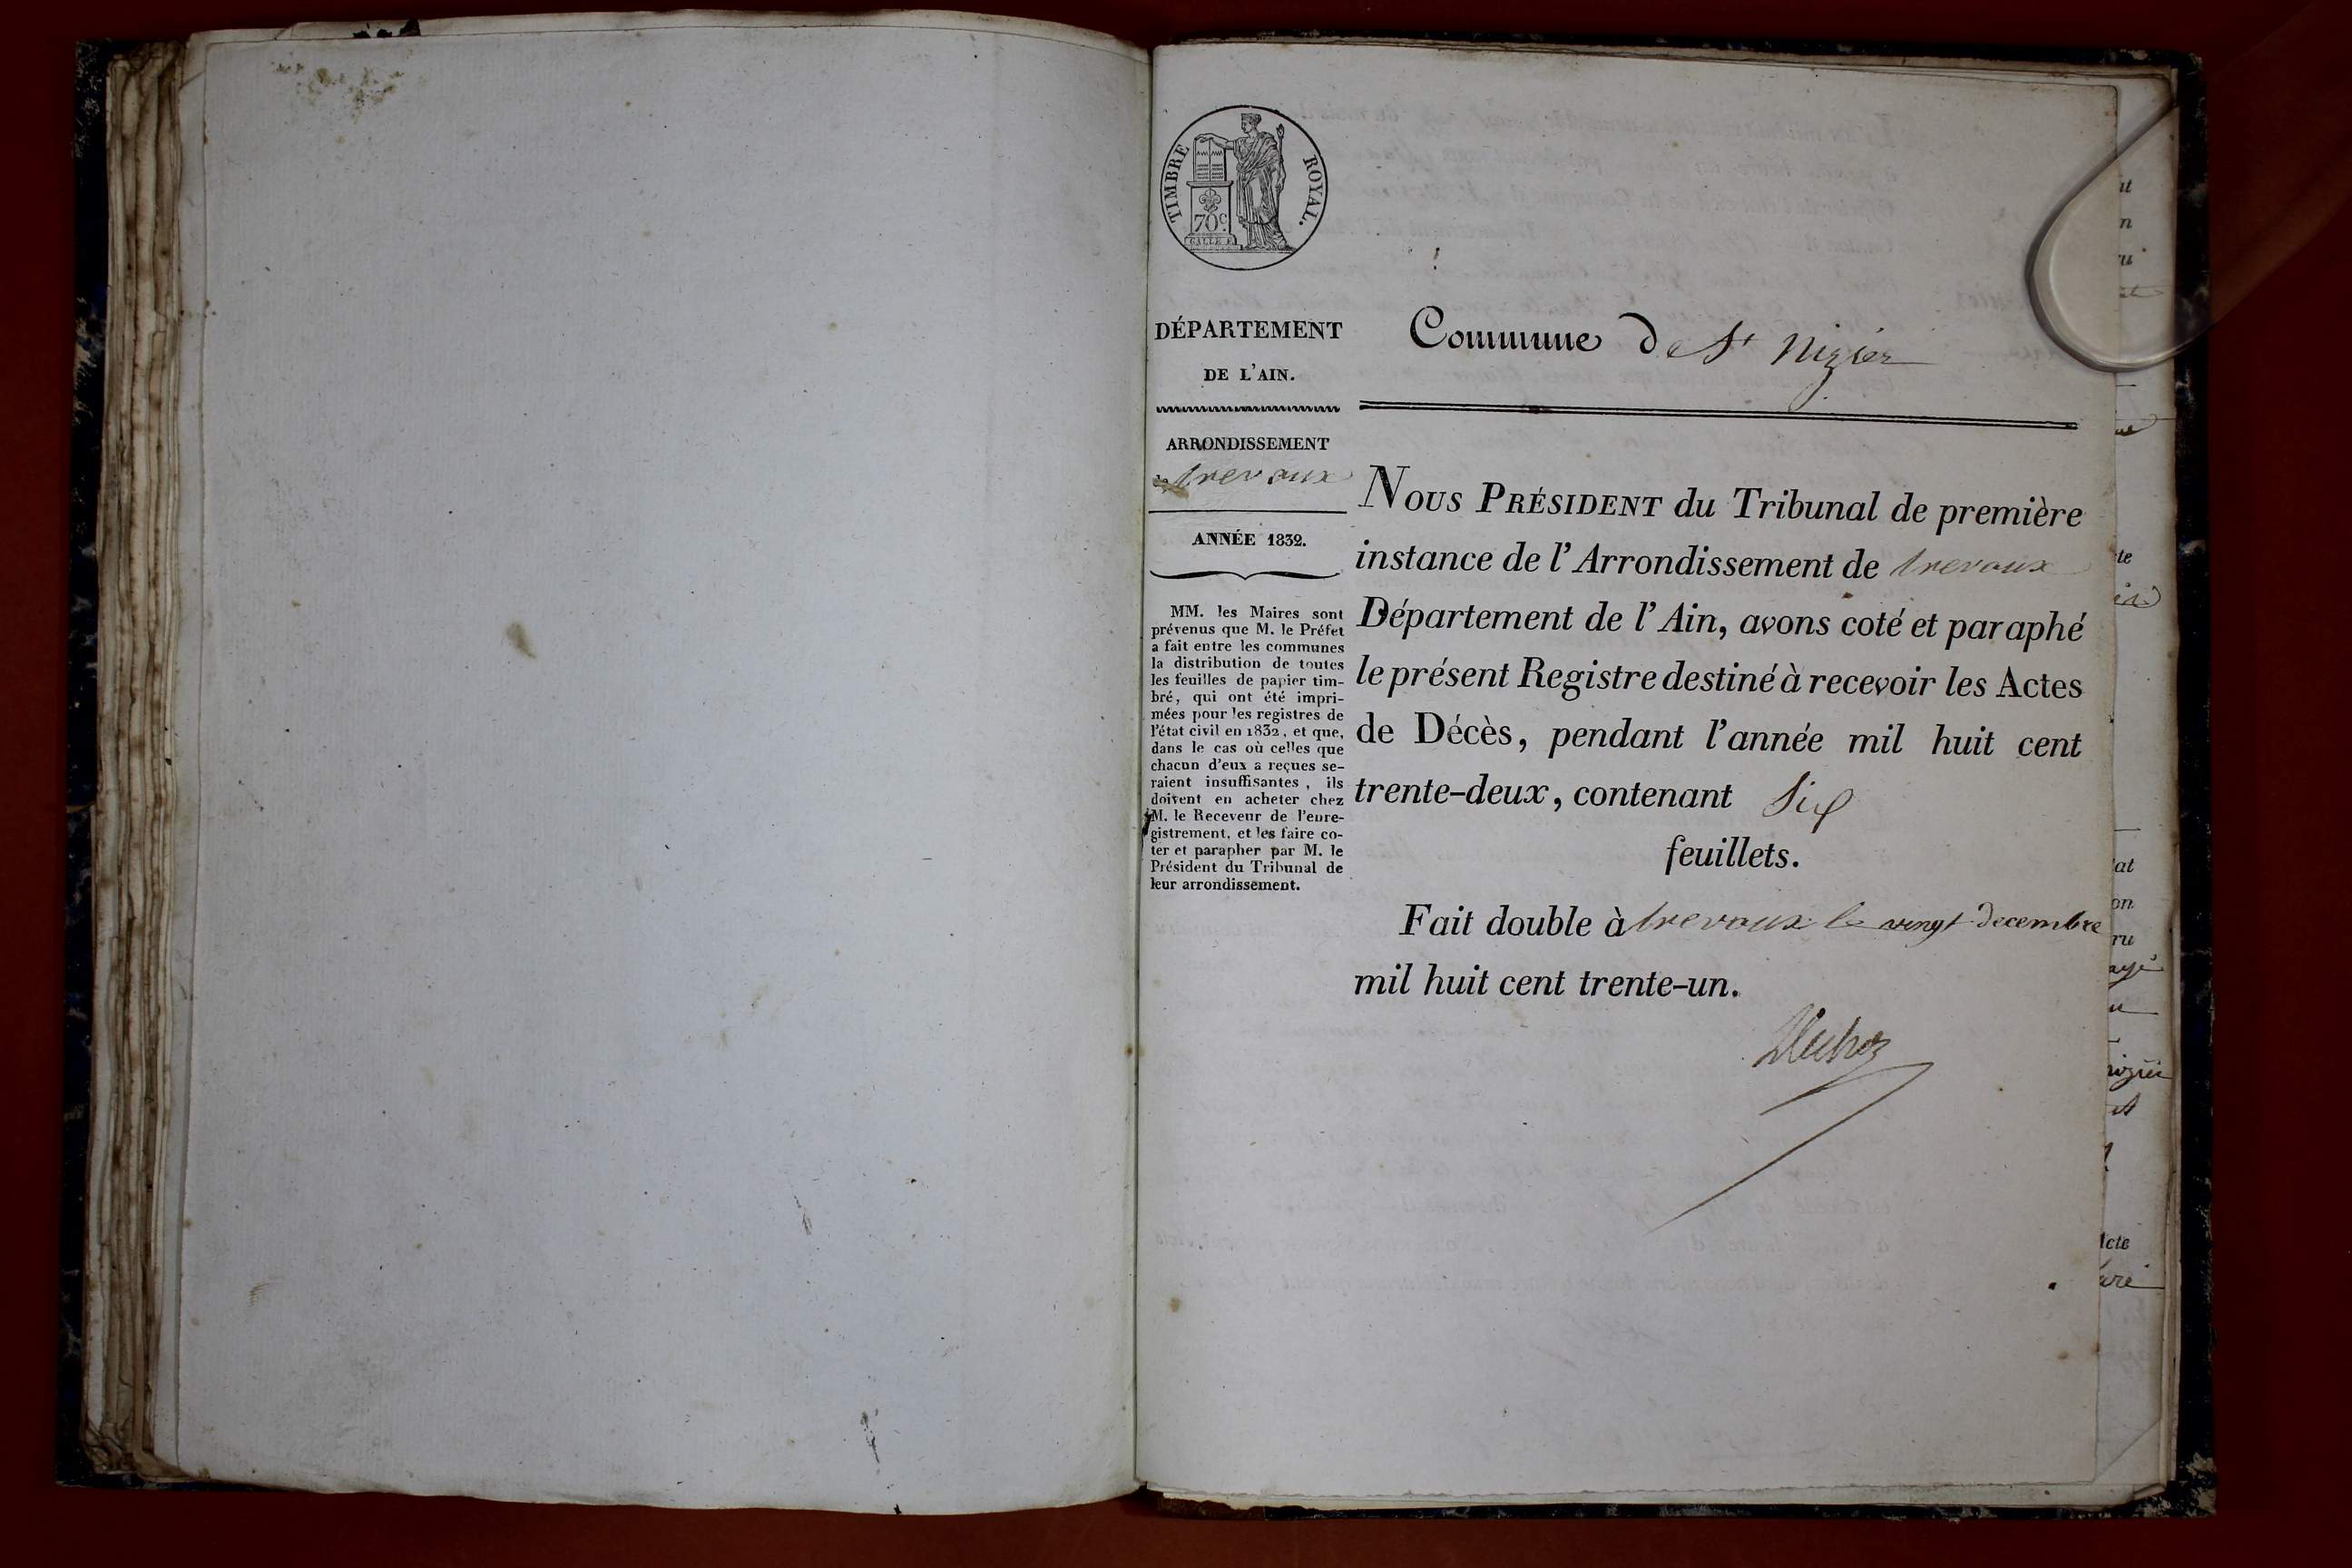 TIMBRE ROYAL.
70c.
GALLE F.
DÉPARTEMENT
DE L'AIN.
ARRONDISSEMENT
de trevoux
ANNÉE 1832.
MM. les Maires sont
prévenus que M. le Préfet
a fait entre les communes
la distribution de toutes
les feuilles de papier tim-
bré, qui ont été impri-
mées pour les registres de
l'état civil en 1832, et que,
dans le cas où celles que
chacun d'eux a reçues se-
raient insuffisantes, ils
doivent en acheter chez
M. le Receveur de l'enre-
gistrement, et les faire co-
ter et parapher par M. le
Président du Tribunal de
leur arrondissement.
Commune de St Nizier
NOUS PRÉSIDENT du Tribunal de première
instance de l'Arrondissement de trevoux
Département de l'Ain, avons coté et paraphé
le présent Registre destiné à recevoir les Actes
de Décès, pendant l'année mil huit cent
trente-deux, contenant Six
feuillets.
Fait double à trevoux le vingt decembre
mil huit cent trente-un.